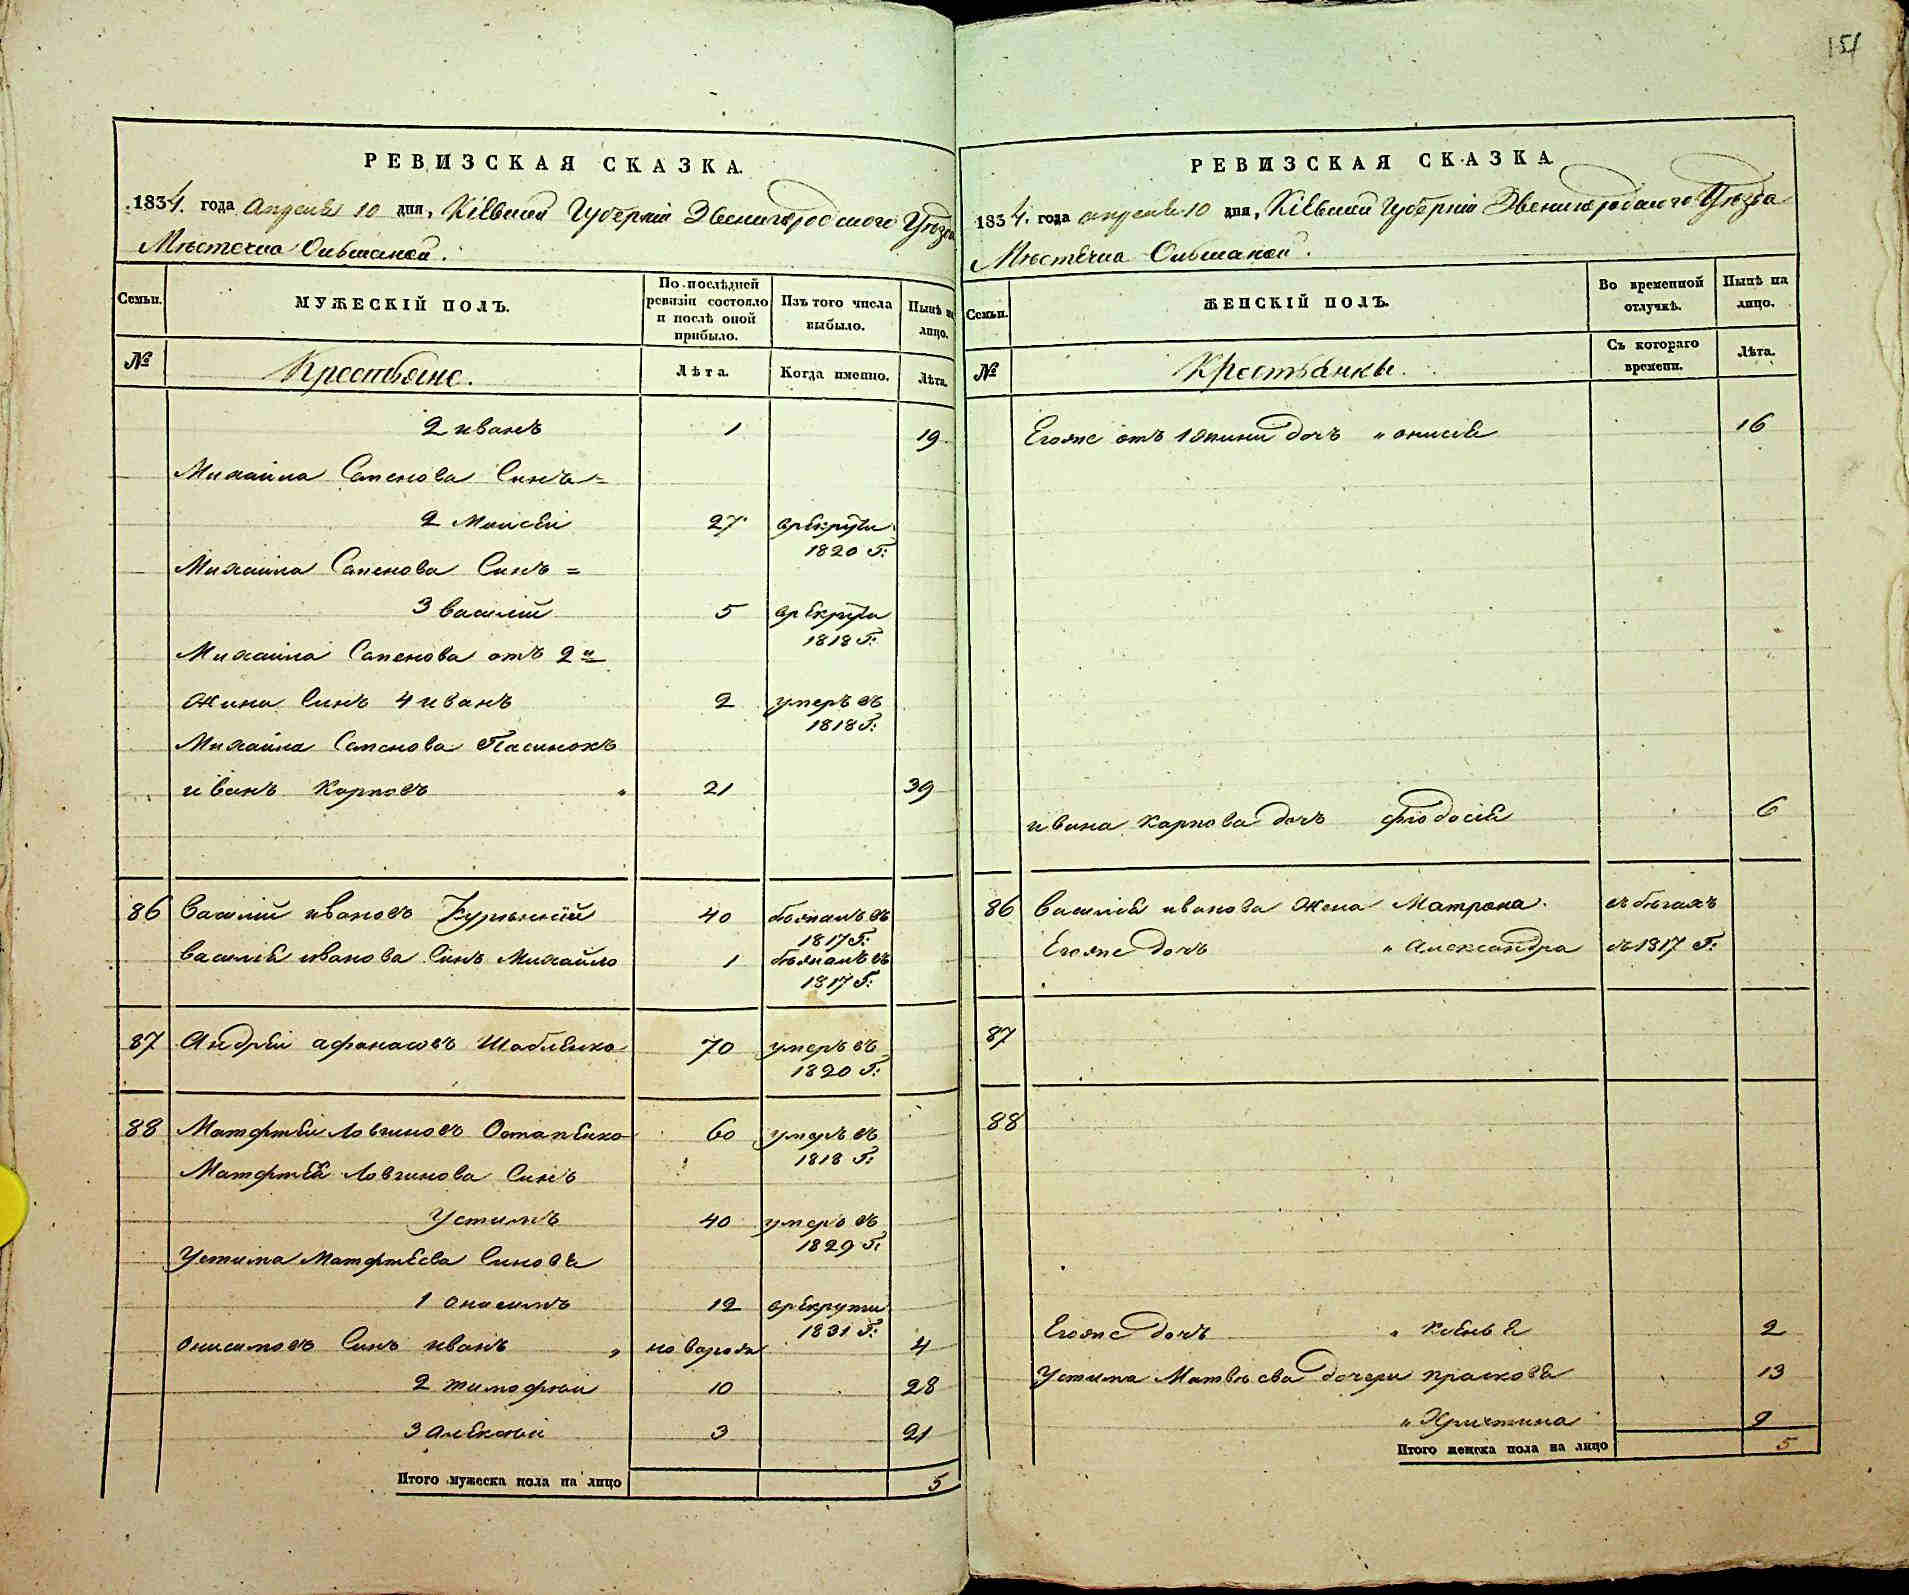 РЕВИЗСКАЯ СКАЗКА.
1834. года Апреля 10 дня, Кіевской Губерніи Звенигородского Уѣзда
Мѣстечка Ольшаной.
Семьи.
МУЖЕСКІЙ ПОЛЪ.
По послѣдней ревизіи состояло и послѣ оной прибыло.
Изъ того числа выбыло.
Нынѣ на лицо.
№
Крестьяне.
Лѣта.
Когда именно.
Лѣта.
2 иванъ 1 19
Михайла Семенова Синъ =
2 Моисей 27 врекруты 1820 Г:
Михайла Семенова Синъ =
3 василій 5 врекруты 1818 Г:
Михайла Семенова отъ 2й
жины Синъ 4 иванъ 2 умеръ въ 1818 Г:
Михайла Семенова Пасинокъ
иванъ Карповъ " 21 39
86 Василій ивановъ 40 бежалъ въ 1817 Г:
василія иванова Синъ Михайло 1 бежалъ въ 1817 Г:
87 Андрей афанасовъ Шабленко 70 умеръ въ 1820 Г:
88 Матфтей Логвиновъ Остапенко 60 умеръ въ 1818 Г:
Матфтея Логвинова Синъ
Устимъ 40 умеръ въ 1829 Г:
Устима Матфтеева Синовя
1 Онисимъ 12 врекруты 1831 Г:
Онисимовъ Синъ иванъ " новорож 4
2 тимофей 10 28
3 Алексѣй 3 21
Итого мужеска пола на лицо 5
151
РЕВИЗСКАЯ СКАЗКА
1834. года апреля 10 дня, Кіевской Губерніи Звенигородского Уѣзда
Мѣстечка Ольшаной.
Семьи.
ЖЕНСКІЙ ПОЛЪ.
Во временной отлучкѣ.
Нынѣ на лицо.
№
Крестьянкы.
Съ котораго времени.
Лѣта.
Егоже отъ 1 жини дочъ " онисія 16
ивана Карпова дочъ фіодосія 6
86 василія иванова жена Матрона въ бѣгахъ
Егоже дочъ " Александра въ 1817 Г:
87
88
Егоже дочъ " Ксенья 2
Устима Матвѣева дочери прасковя 13
" Христина 9
Итого женска пола на лицо 5